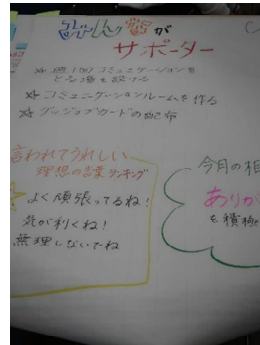 みんながサポーター
☆週1回コミュニケーションを
とる場を設ける
☆コミュニケーションルームを作る
☆グッジョブカードの配布
言われてうれしい
理想の言葉ランキング
よく頑張ってるね!
気が利くね!
無理しないでね
今月の相
ありが
を積極